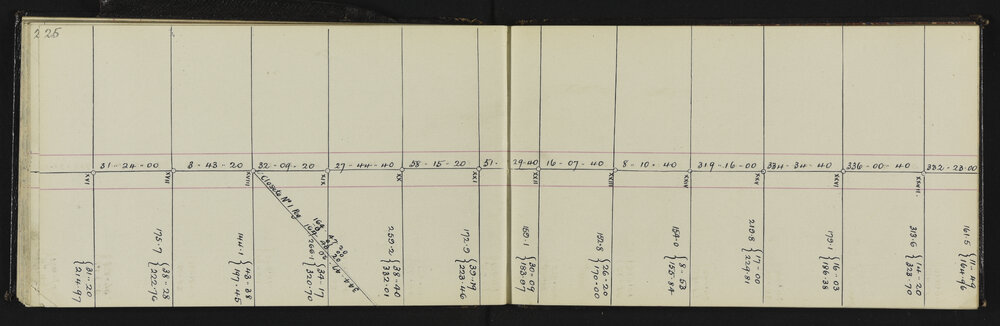 225
31-24-00
3-43-20
32-09-20
27-44-40
58-15-20
51-29-40
16-07-40
8-10-40
319-16-00
334-34-40
336-00-40
332-23-00
XVI
XVII
XVIII
XIX
XX
XXI
XXII
XXIII
XXIV
XXV
XXVI
XXVII
Closes No 1 Rg
31-20
214-97
175.7
38-28
222-76
144.1
43-38
197-45
34-17
320-70
259.2
38-40
332-01
172.9
39-19
223-46
159.1
30-09
183-97
152.8
26-20
170-00
154.0
8-53
155-84
210.8
17-00
229-81
179.1
16-03
186-38
313.6
14-20
323-70
161.5
11-49
164-96